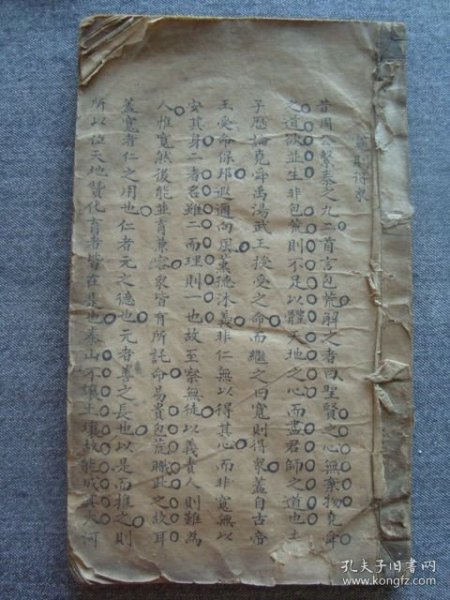 寬則得眾
昔周公繫泰之九二首言包荒解之者曰聖賢之心無棄物堯舜
之道欲並生非包荒則不足以體天地之心而盡君師之道也夫
子歷論堯舜禹湯武王授受之命而繼之曰寬則得眾蓋自古帝
王受命保邦遐邇向風薰德沐義非仁無以得其心而非寬無以
安其身二者名雖二而理則一也故至察無徒以義責人則難為
人惟寬然後能並育兼容眾皆有所託命焉蓋包荒
蓋寬者仁之用也仁者元之德也元者善之長也以是而推之則
所以位天地贊化育者皆在是也泰山不讓土壤故能成其大河
孔夫子旧书网
www.kongfz.com